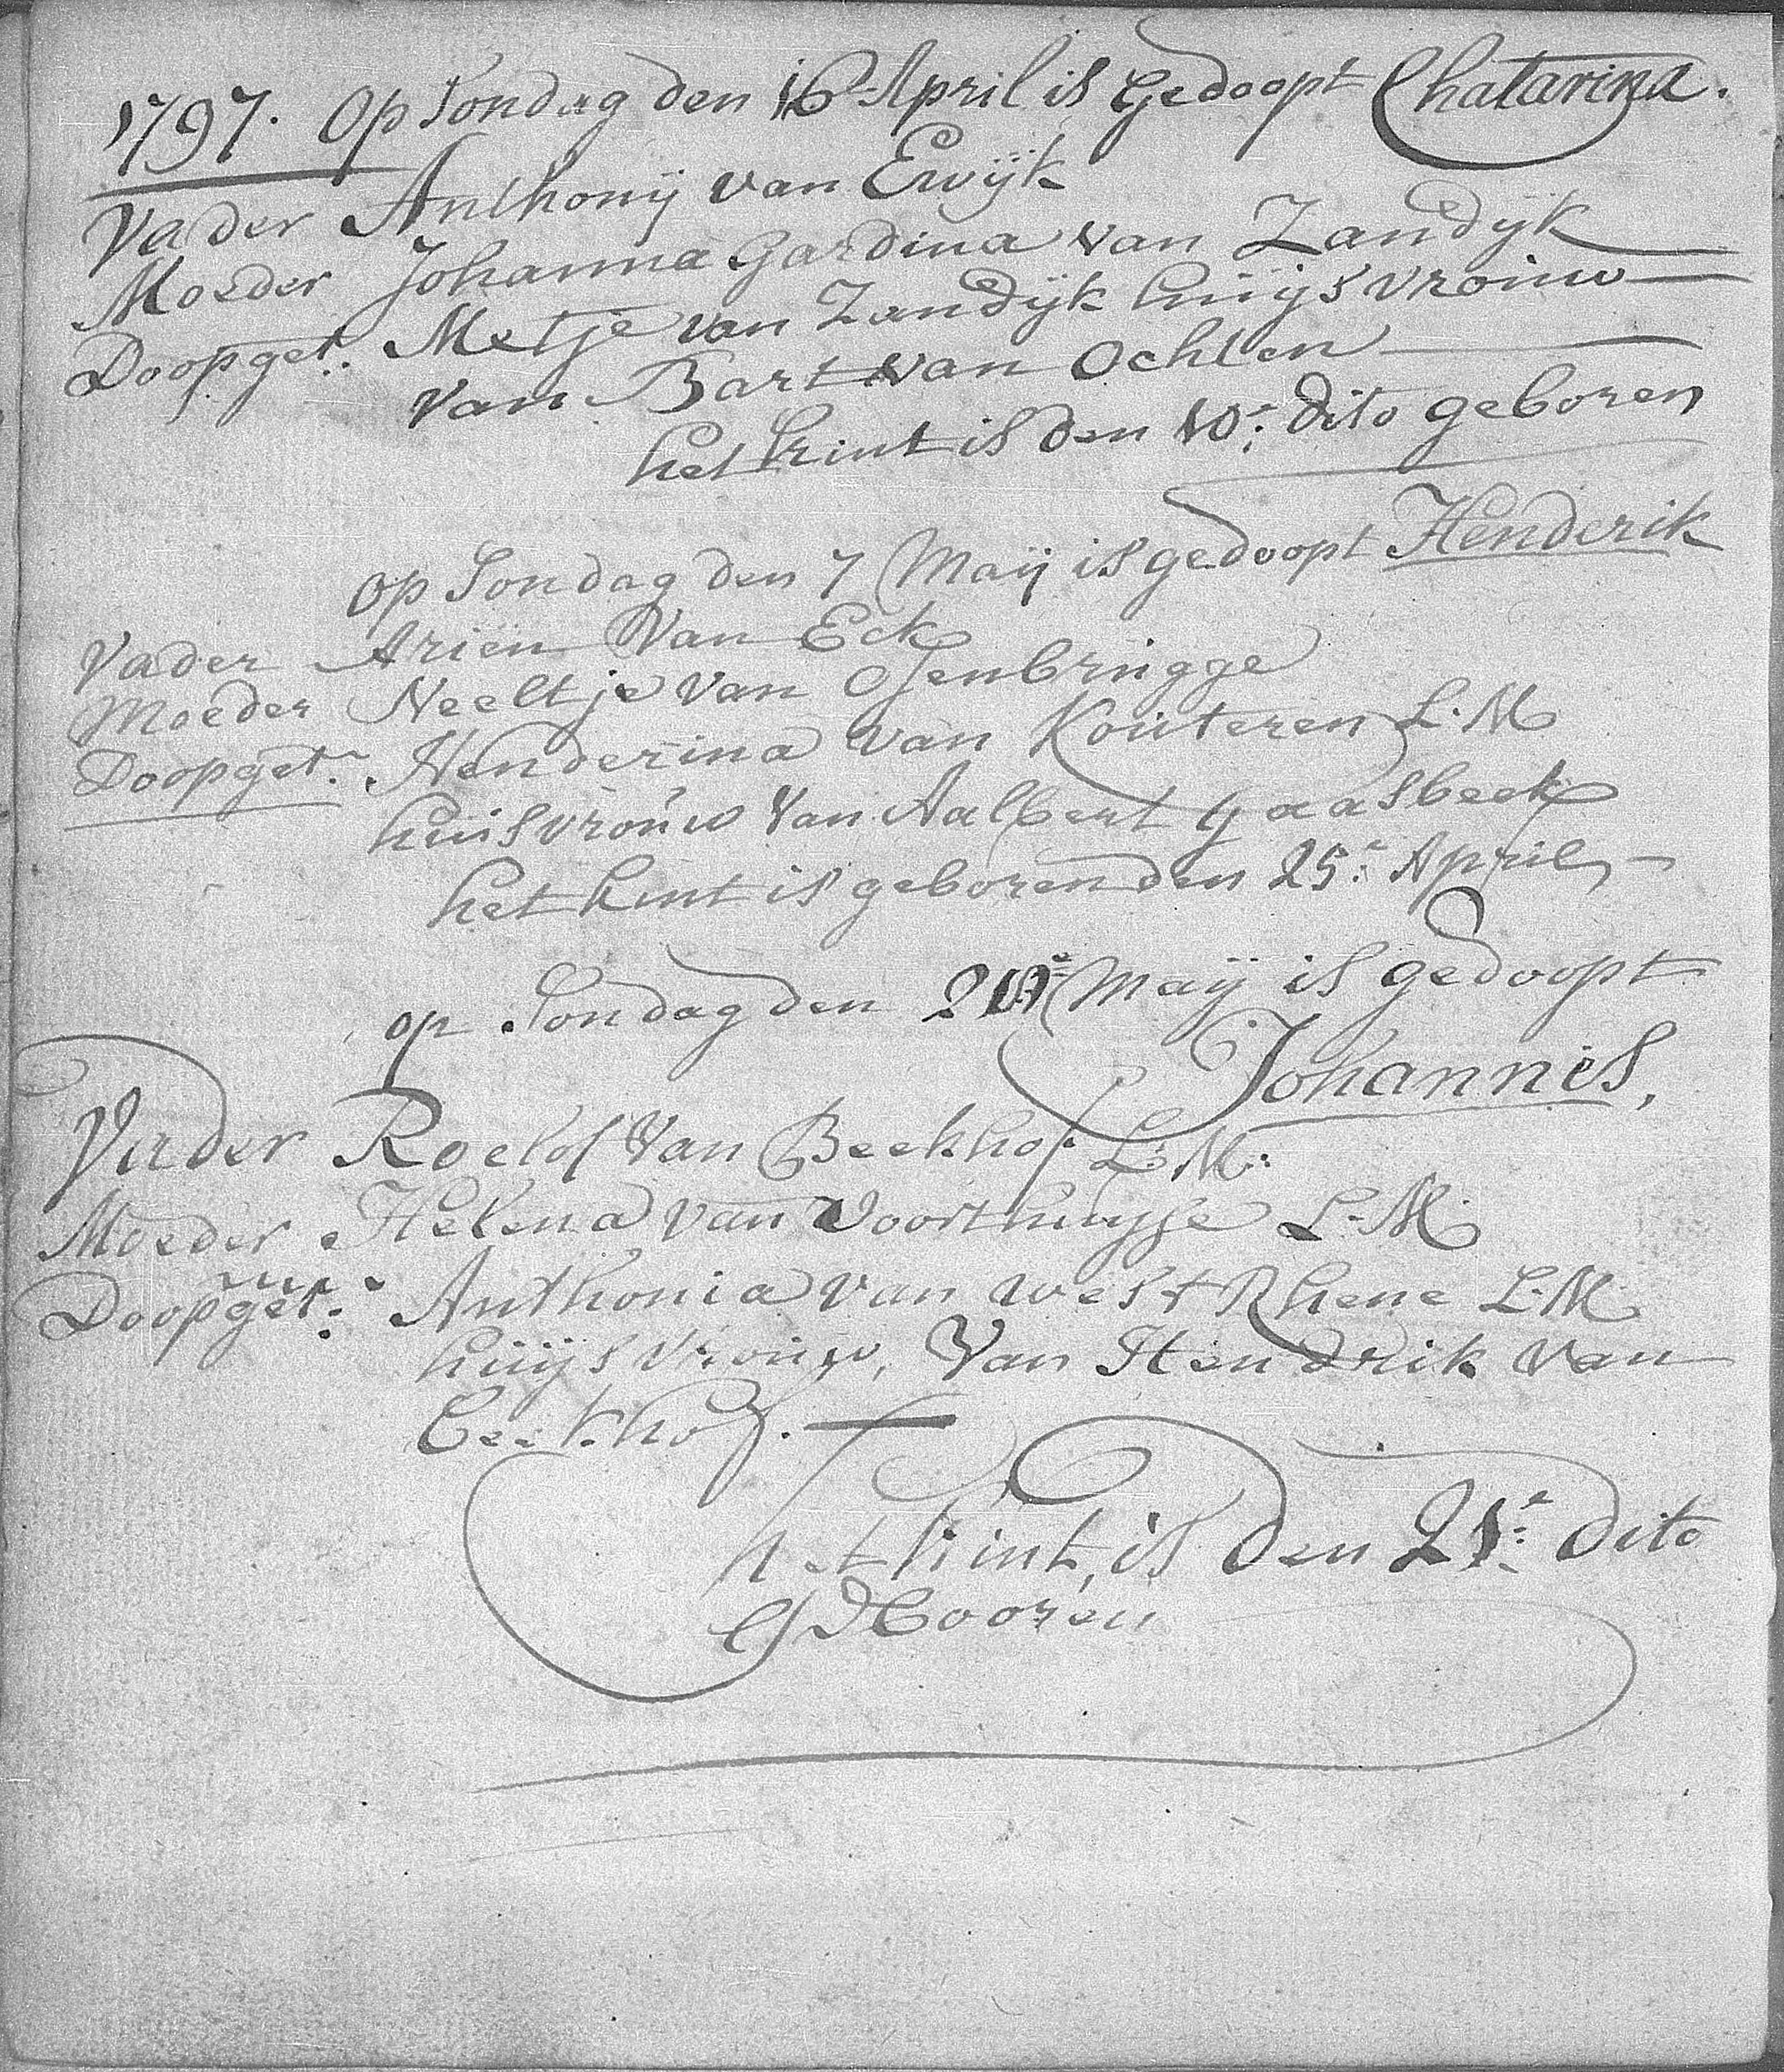 1797. Op Sondag den 16 April is Gedoopt Chatarina.
Vader Anthonij van Ewijk
Moeder Johanna Gardina van Zandijk
Doopget. Metje van Zandijk huijsvrouw
van Bart van Ochten
het kint is den 10e dito geboren
op Sondag den 7 Maij is gedoopt Henderik
Vader Arien Van Eck
Moeder Neeltje van Osenbrugge
Doopget. Henderina van Kouteren L. M
huisvrouw Van Aalbert Gaasbeek
het kint is geboren den 25e April
op Sondag den Maij is gedoopt
Johannes,
Vader Roelof Van Beekhof L. M.
Moeder Helena van Voorthuysse L. M.
Doopget. Anthonia van West Rhene L. M
huijsvrouw, Van Hendrik van
Beekhof.
het kint, is den 21e dito
Gebooren